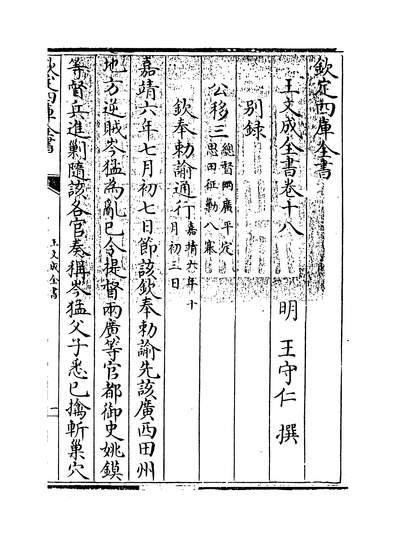 欽定四庫全書
王文成全書卷十八
明 王守仁 撰
別録
公移三
總督兩廣平定
思田征勦八寨
欽奉勅諭通行
嘉靖六年十
月初三日
嘉靖六年七月初七日節該欽奉勅諭先該廣西田州
地方逆賊岑猛為亂已令提督兩廣等官都御史姚鏌
等督兵進剿隨該各官奏稱岑猛父子悉已擒斬巢穴
欽定四庫全書
王文成全書
一